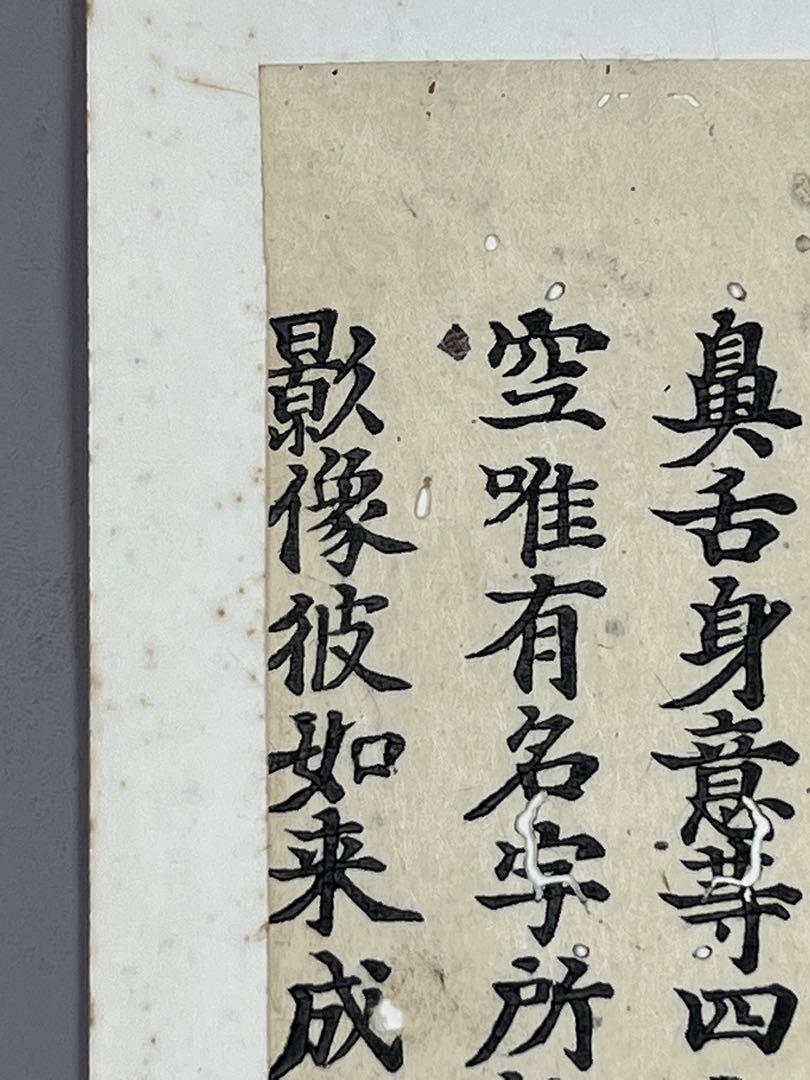 鼻舌身意䓁四
空唯有名字所
影像彼如来成